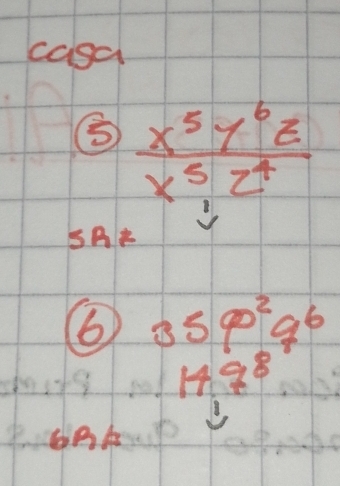 casa
⑤ x⁵y⁶z
x⁵ z⁴
↓
5R*
⑥ 35p²q⁶
14q⁸
↓
6R*